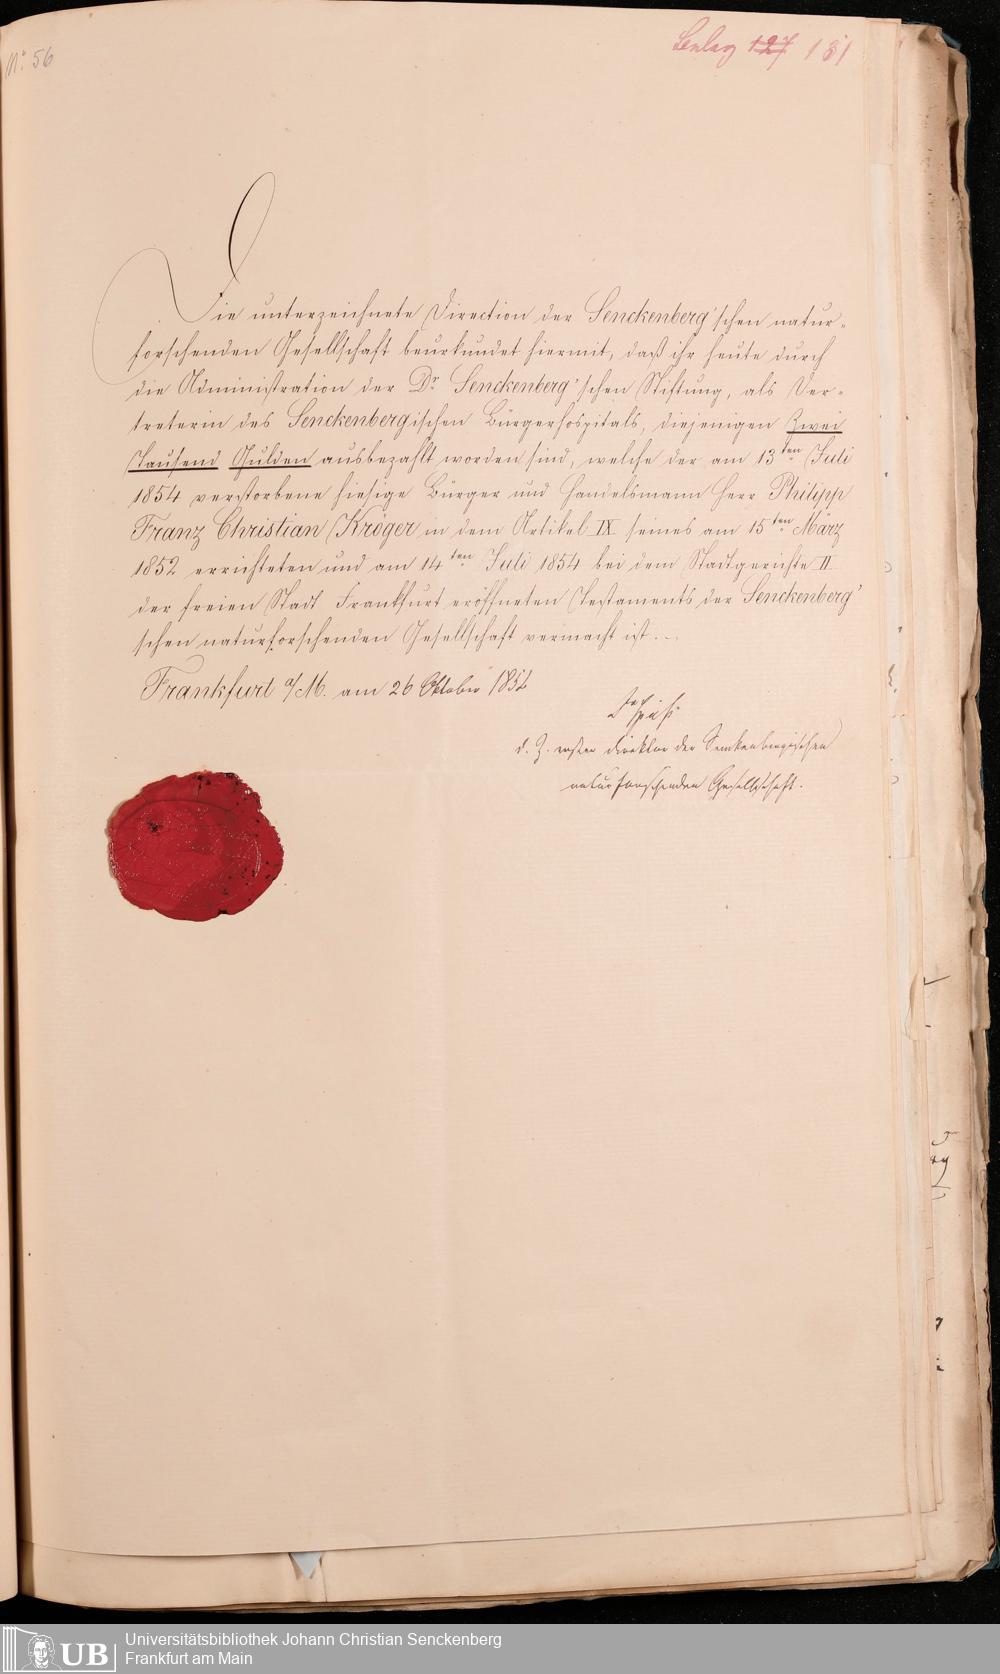 No. 56
Beilag 127 131
Die unterzeichnete Direction der Senckenberg'schen natur-
forschenden Gesellschaft beurkundet hiermit, daß ihr heute durch
die Administration der Dr. Senckenberg'schen Stiftung, als Ver-
treterin des Senckenbergischen Bürgerhospitals, diejenigen Zwei
Tausend Gulden ausbezahlt worden sind, welche der am 13ten Juli
1854 verstorbene hiesige Bürger und Handelsmann Herr Philipp
Franz Christian Kröger in dem Artikel IX seines am 15ten März
1852 errichteten und am 14ten Juli 1854 bei dem Stadtgerichte II
der freien Stadt Frankfurt eröffneten Testaments der Senckenberg'
schen naturforschenden Gesellschaft vermacht ist. –
Frankfurt a/M. am 26 Oktober 1854
Dr Spieß
d. Z. erster Direktor der Senckenbergischen
naturforschenden Gesellschaft.
UB
Universitätsbibliothek Johann Christian Senckenberg
Frankfurt am Main